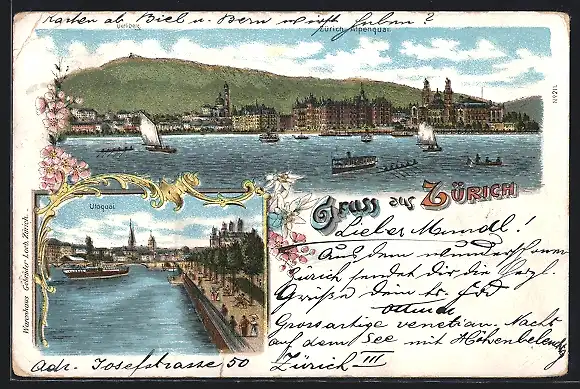 Karten ab Biel u. Bern wirst haben?
Uetliberg
Zürich, Alpenquai
Nº 211.
Utoquai
Warenhaus Gebrüder Loeb, Zürich.
Gruss aus Zürich
Lieber Mandl!
Aus dem wunderschönen
Zürich sendet dir die herzl.
Grüße dein tr.
Grossartige venetian. Nacht
auf dem See mit Höhenbeleuchtg
Adr. Josefstrasse 50 Zürich III